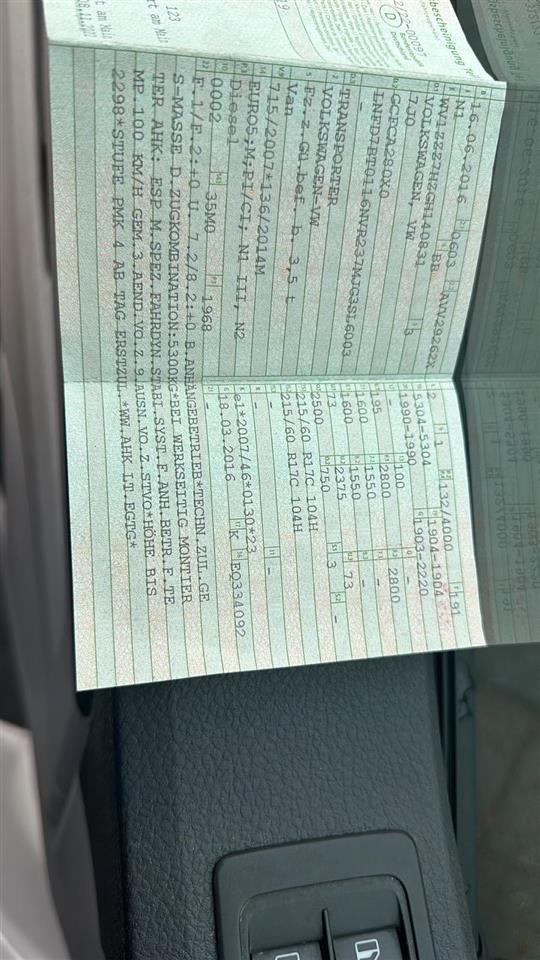 2/22-00097
bescheinigung
D
123
16.06.2016 0603 AVV29262X
N1 BB
WV1ZZZ7HZGH140831 3
VOLKSWAGEN, VW
7J0
GCFCA280X0
LNFD7BT0116NVR237MJG3SL6003
-
TRANSPORTER
VOLKSWAGEN-VW
Fz.z.Gü.bef. b. 3,5 t
Van
715/2007*136/2014M
EURO5;M;PI/CI; N1 III, N2
Diesel
0002 35M0 1968
2 1 132/4000 191
5304-5304 1904-1904
1990-1990 1903-2220
- 100 - -
195 2800 2800
1600 1550 -
1600 1550 -
73 2375 73
2500 750 3 -
215/60 R17C 104H
215/60 R17C 104H
- -
-
e1*2007/46*0130*23
18.03.2016 K EQ334092
-
F.1/F.2:+0 U. 7.2/8.2:+0 B.ANHÄNGEBETRIEB*TECHN.ZUL.GE
S-MASSE D.ZUGKOMBINATION:5300KG*BEI WERKSEITIG MONTIER
TER AHK: ESP M.SPEZ.FAHRDYN.STABI.SYST.F.ANH.BETR.F.TE
MP.100 KM/H GEM.3.AEND.VO.Z.9.AUSN.VO.Z.STVO*HÖHE BIS
2298*STUFE PMK 4 AB TAG ERSTZUL.*WW.AHK LT.EGTG*